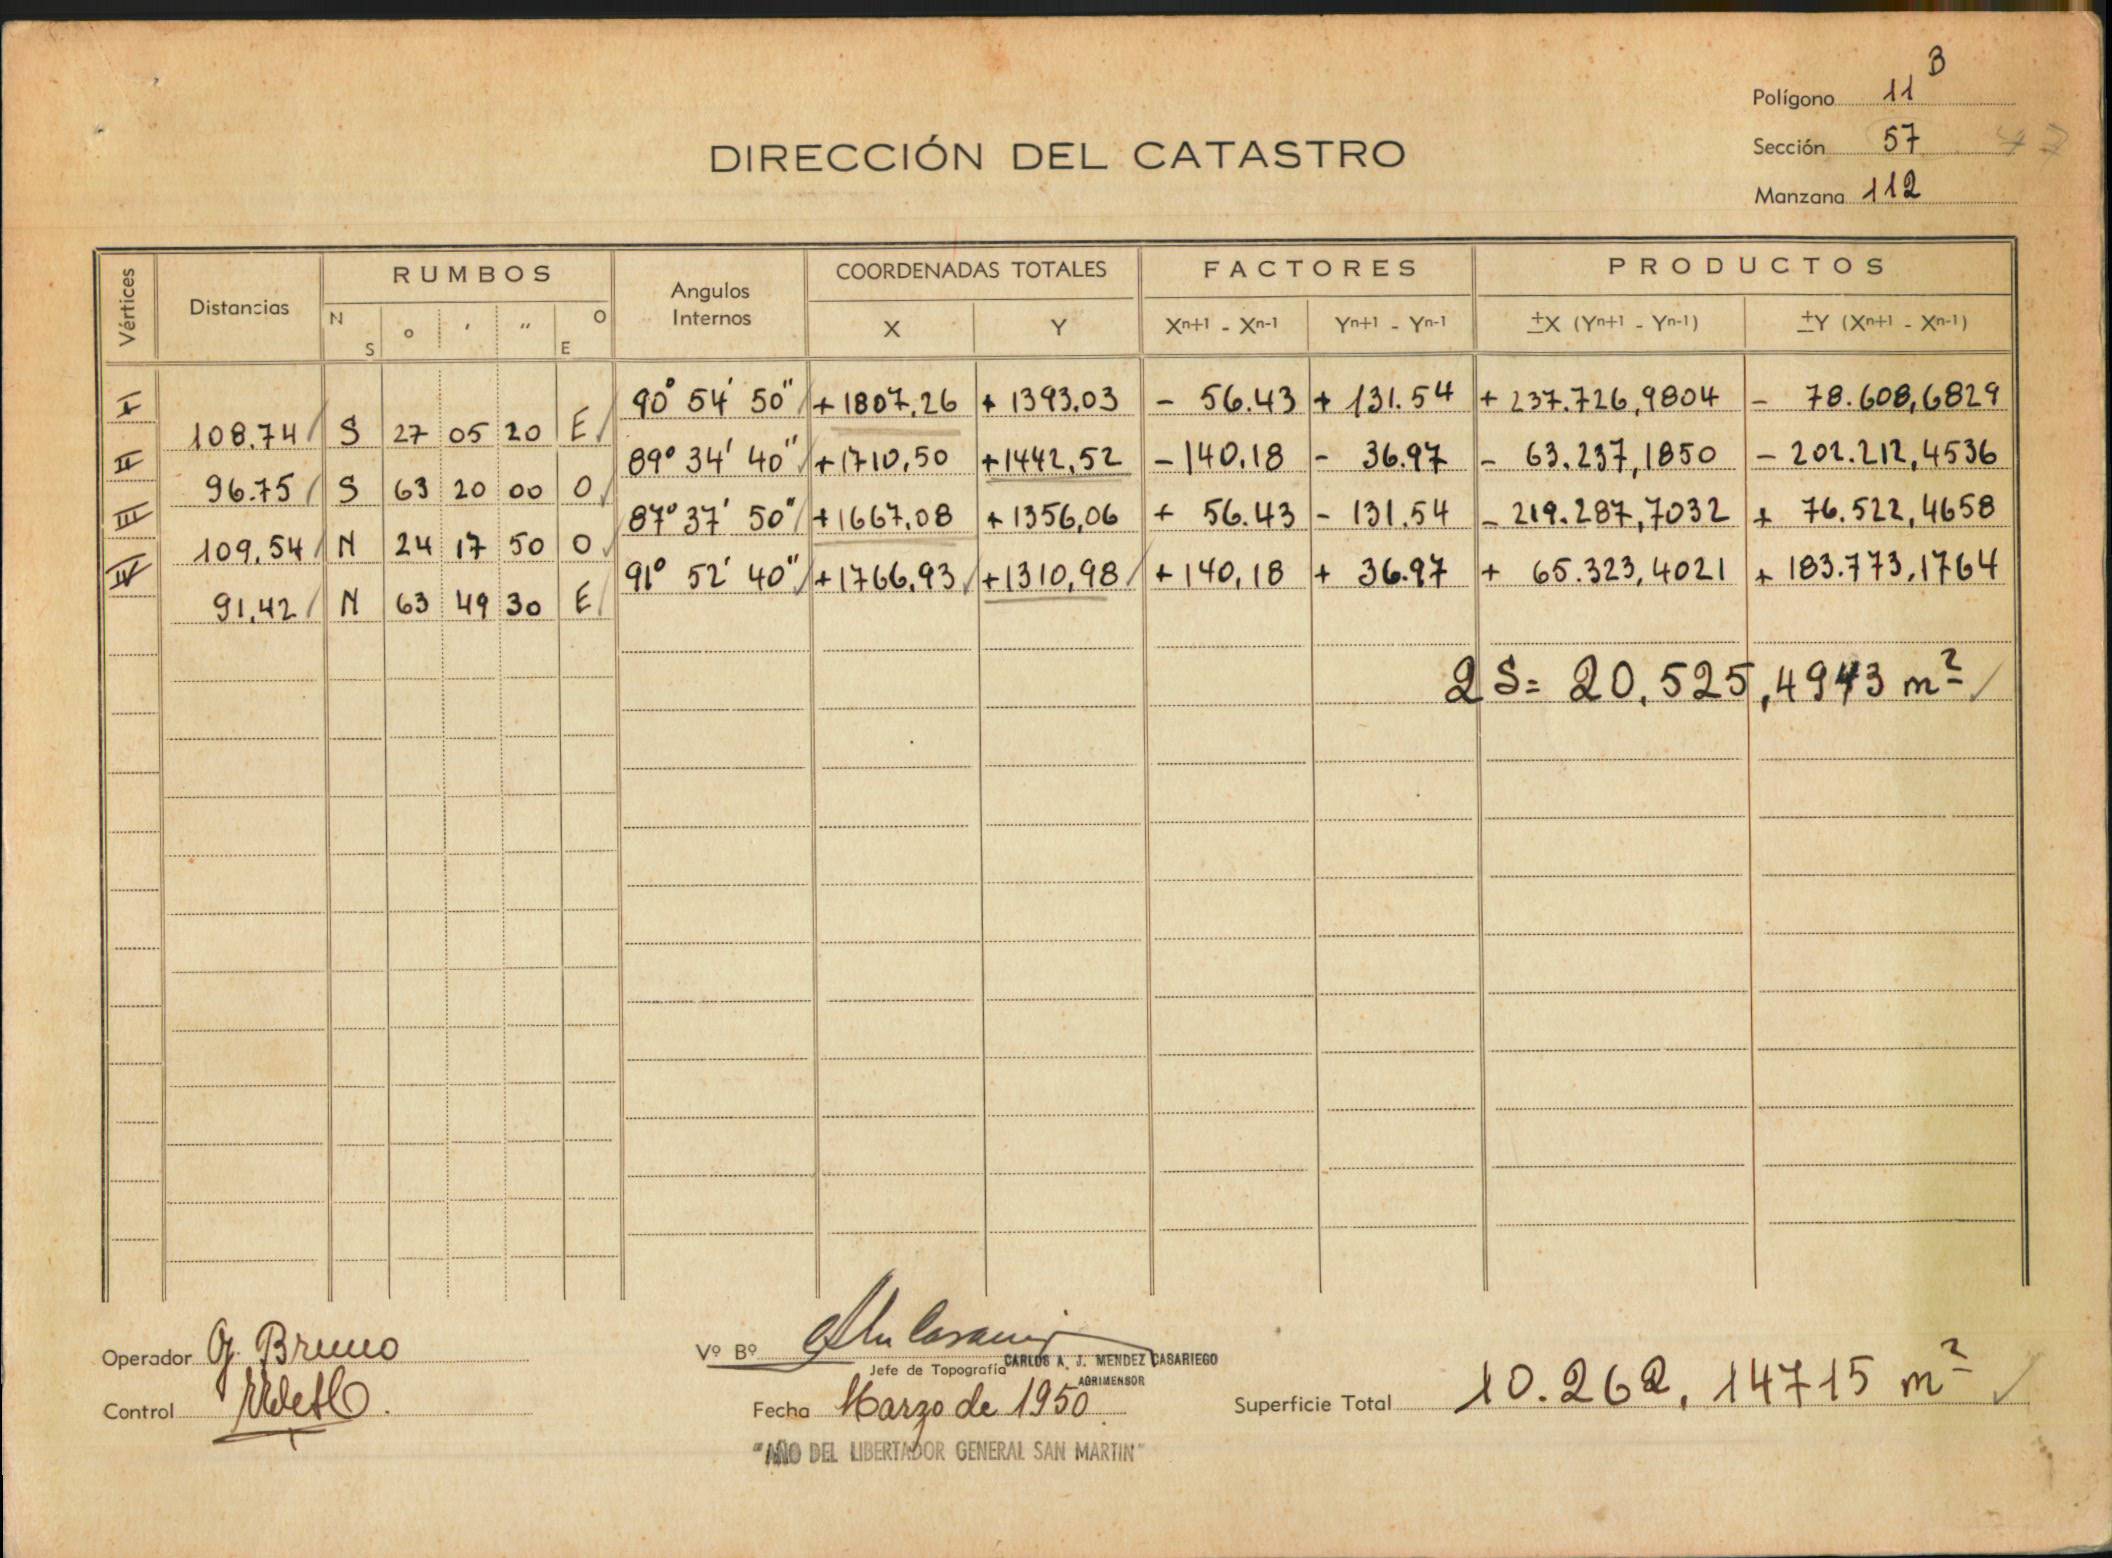 B
Polígono 11
DIRECCIÓN DEL CATASTRO
Sección 57
Manzana 112
Vértices Distancias RUMBOS Angulos Internos COORDENADAS TOTALES FACTORES PRODUCTOS
N S ° ' " O E X Y Xn+1 - Xn-1 Yn+1 - Yn-1 ±X (Yn+1 - Yn-1) ±Y (Xn+1 - Xn-1)
I 90° 54' 50" +1807,26 +1393,03 - 56.43 + 131.54 + 237.726,9804 - 78.608,6829
108.74 S 27 05 20 E
II 89° 34' 40" +1710,50 +1442,52 -140,18 - 36.97 - 63.237,1850 - 202.212,4536
96.75 S 63 20 00 O
III 87° 37' 50" +1667,08 +1356,06 + 56.43 - 131.54 - 219.287,7032 + 76.522,4658
109,54 N 24 17 50 O
IV 91° 52' 40" +1766,93 +1310,98 +140,18 + 36.97 + 65.323,4021 + 183.773,1764
91,42 N 63 49 30 E
2S= 20.525,4943 m²
Operador G. Bruno
Vº Bº
Jefe de Topografía CARLOS A. J. MENDEZ CASARIEGO
AGRIMENSOR
Control
Fecha Marzo de 1950
Superficie Total 10.262,14715 m²
"AÑO DEL LIBERTADOR GENERAL SAN MARTIN"